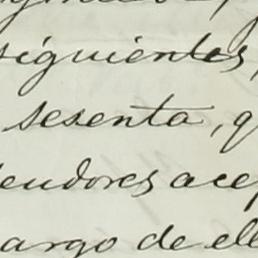 siguientes,
sesenta, q
eudores acep
argo de ell